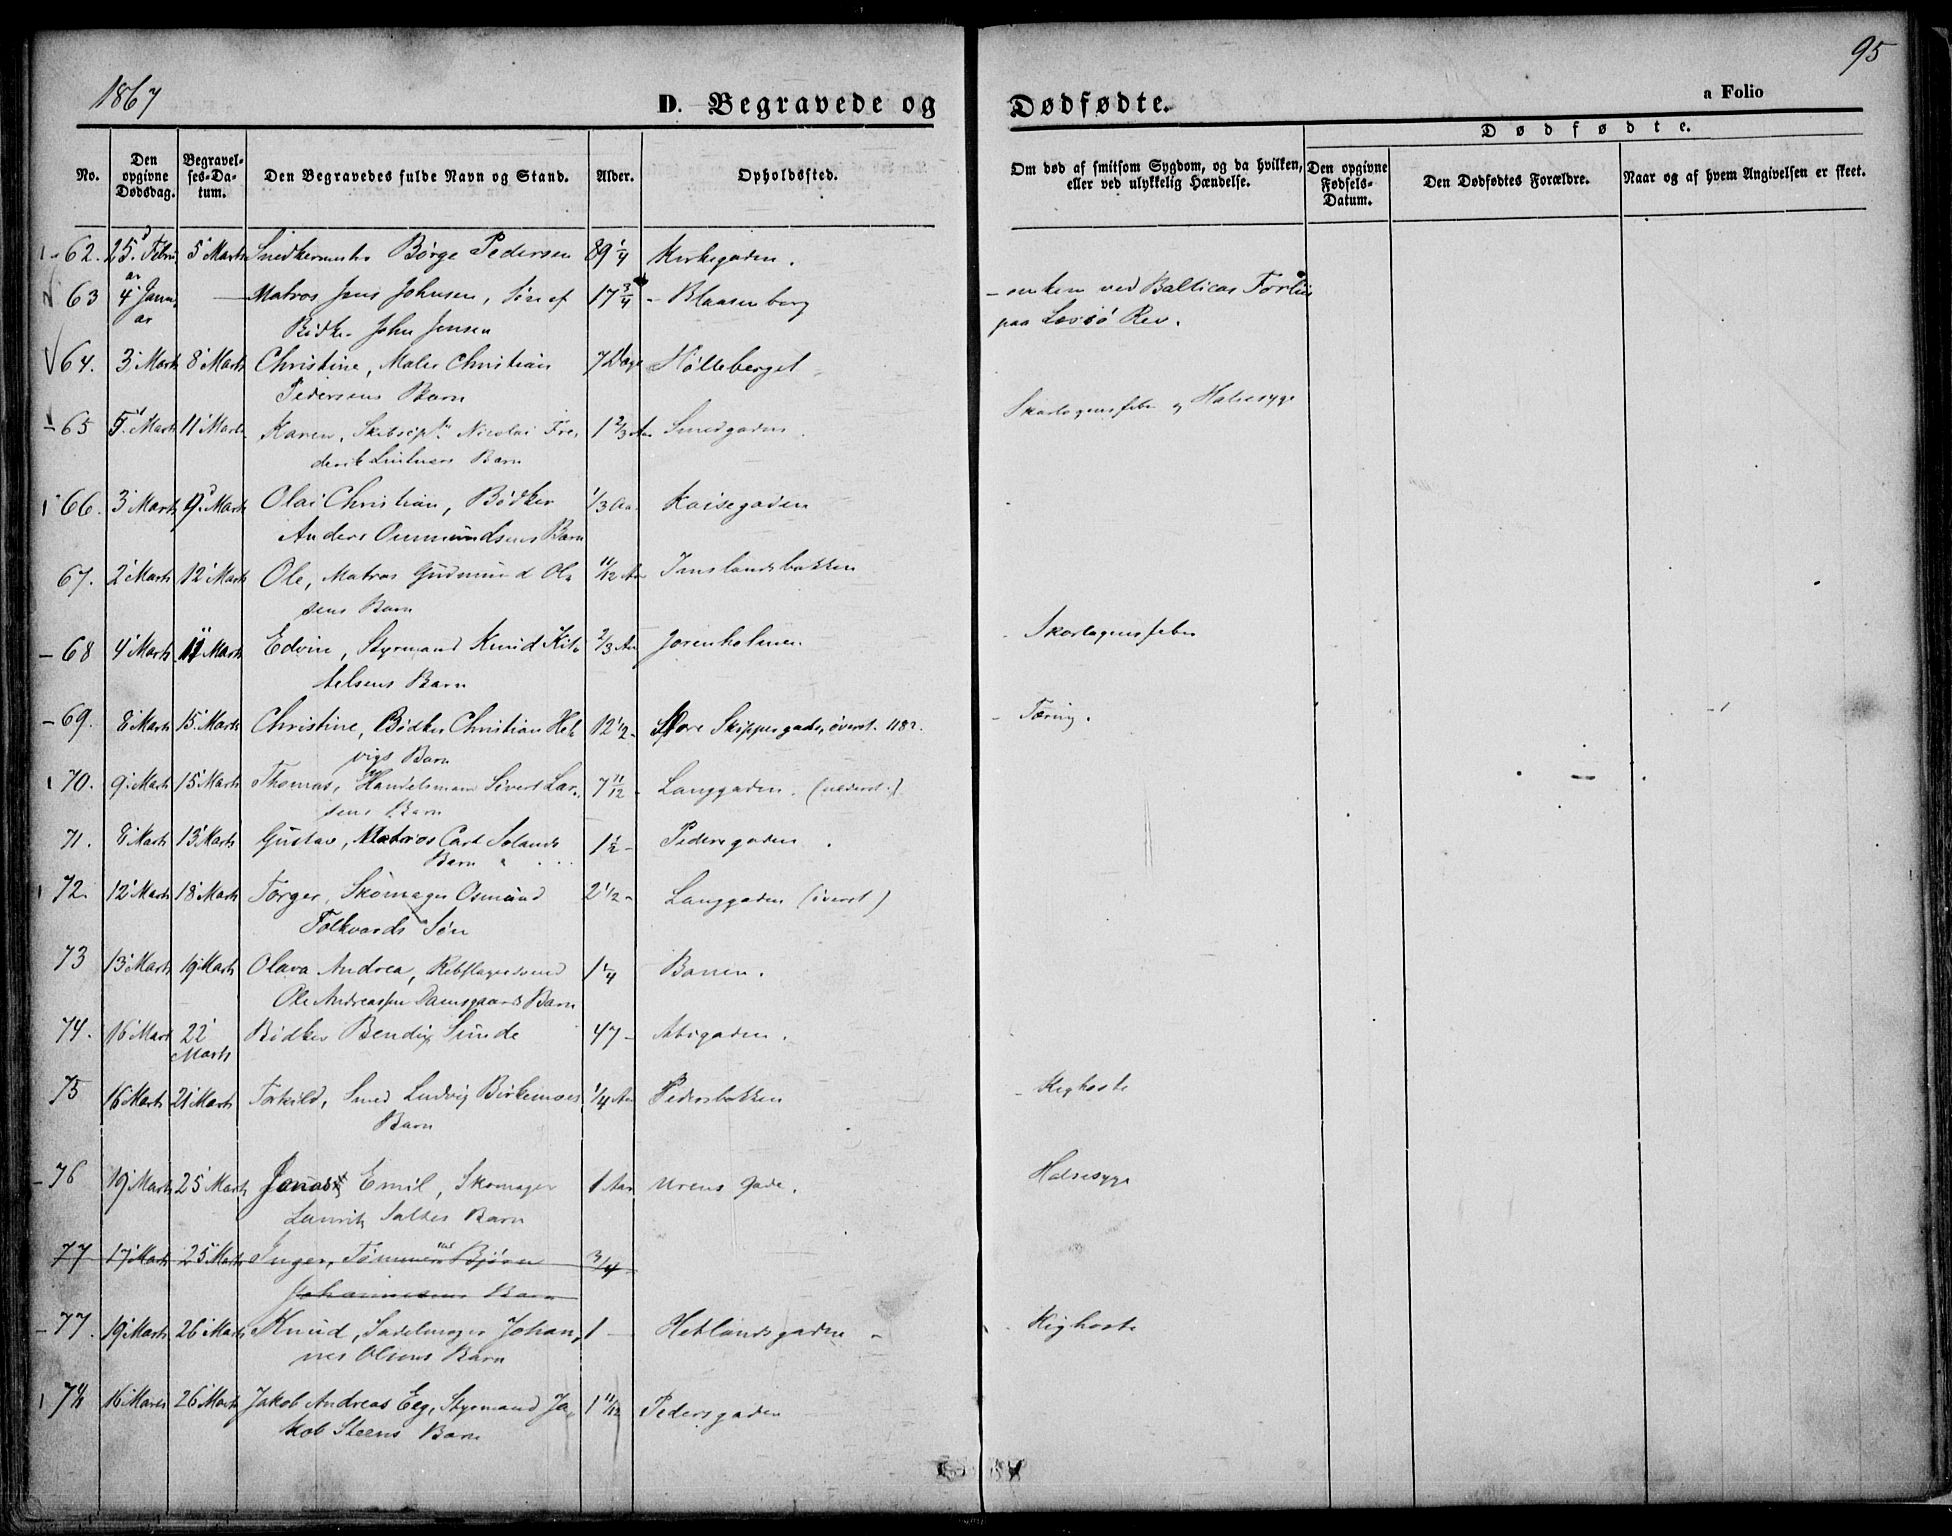 1867 D. Begravede og Dødfødte. a Folio 95
Dødfødte.
No. Den opgivne Dødsdag. Begravelses-Datum. Den Begravedes fulde Navn og Stand. Alder. Opholdssted. Om død af smitsom Sygdom, og da hvilken, eller ved ulykkelig Hændelse. Den opgivne Fødsels-Datum. Den Dødfødtes Forældre. Naar og af hvem Angivelsen er skeet.
62. 25 Febru 5 Marts Snedkermester Børge Pedersen 89 1/4 Kirkegaden.
ar
63 4 Janu — Matros Jens Johnsen, Søn af 17 3/4 - Blaasenborg - omkom ved Balticas Forliis
ar Bødker John Jensen paa Læssø Rev.
64. 3 Marts 8 Marts Christine, Maler Christian 7 Dage Hølleberget
Pedersens Barn
65 5 Marts 11 Marts Karen, Skibscpt. Nicolai Fre 1 2/3 Aar Smedgaden. Skarlagensfeber og Halsesyge
derik Barn
66. 3 Marts 9 Marts Olai Christian, Bødker 1/3 Aar Kaisegaden
Anders Ommundsens Barn
67. 2 Marts 12 Marts Ole, Matros Gudmund Ol 11/12 Aar Janslandsbakken
sens Barn
68 4 Marts 11 Marts Edvin, Styrmand Knud Kit 2/3 Aar Jorenholmen - Skarlagensfeber
telsens Barn
69. 8 Marts 15 Marts Christine, Bødker Christian Hel 12 1/2 - Store Skippergade, øverst. 118 - Tæring.
vigs Barn
70. 9 Marts 15 Marts Thomas, Handelsmand Sivert Lar 7 11/12 - Langgaden. (nederst.)
sens Barn
71. 8 Marts 13 Marts Gustav, Matros Carl Solands 1 1/2 - Pedersgaden.
Barn
72. 12 Marts 18 Marts Torger, Skomager Osmund 2 1/2 - Langgaden (øverst)
Folkvords Søn
73 13 Marts 19 Marts Olava Andrea, Rebslagersvend 1 1/4 Banen.
Ole Andreassen Damsgaards Barn
74. 16 Marts 22 Bødker Bendix Sunde 47 -
Marts
75 16 Marts 21 Marts Torkild, Smed Ludvig Birkemoes 1/4 Aar Pedersbakken - Kighoste
Barn
76 19 Marts 25 Marts Jonas Emil, Skomager 1 Aar Urens Gade. Halsesyge
Laurits Saltes Barn
77 17 Marts 25 Marts Inger, Tømmermd Bjørn 3/4
Johannesens Barn
77. 19 Marts 26 Marts Knud, Sadelmager Johan 1 - Hetlandsgaden - - Kighoste
nes Olsens Barn
78 16 Marts 26 Marts Jakob Andreas Eeg, Styrmand Ja 1 11/12 Pedersgaden
kob Steens Barn